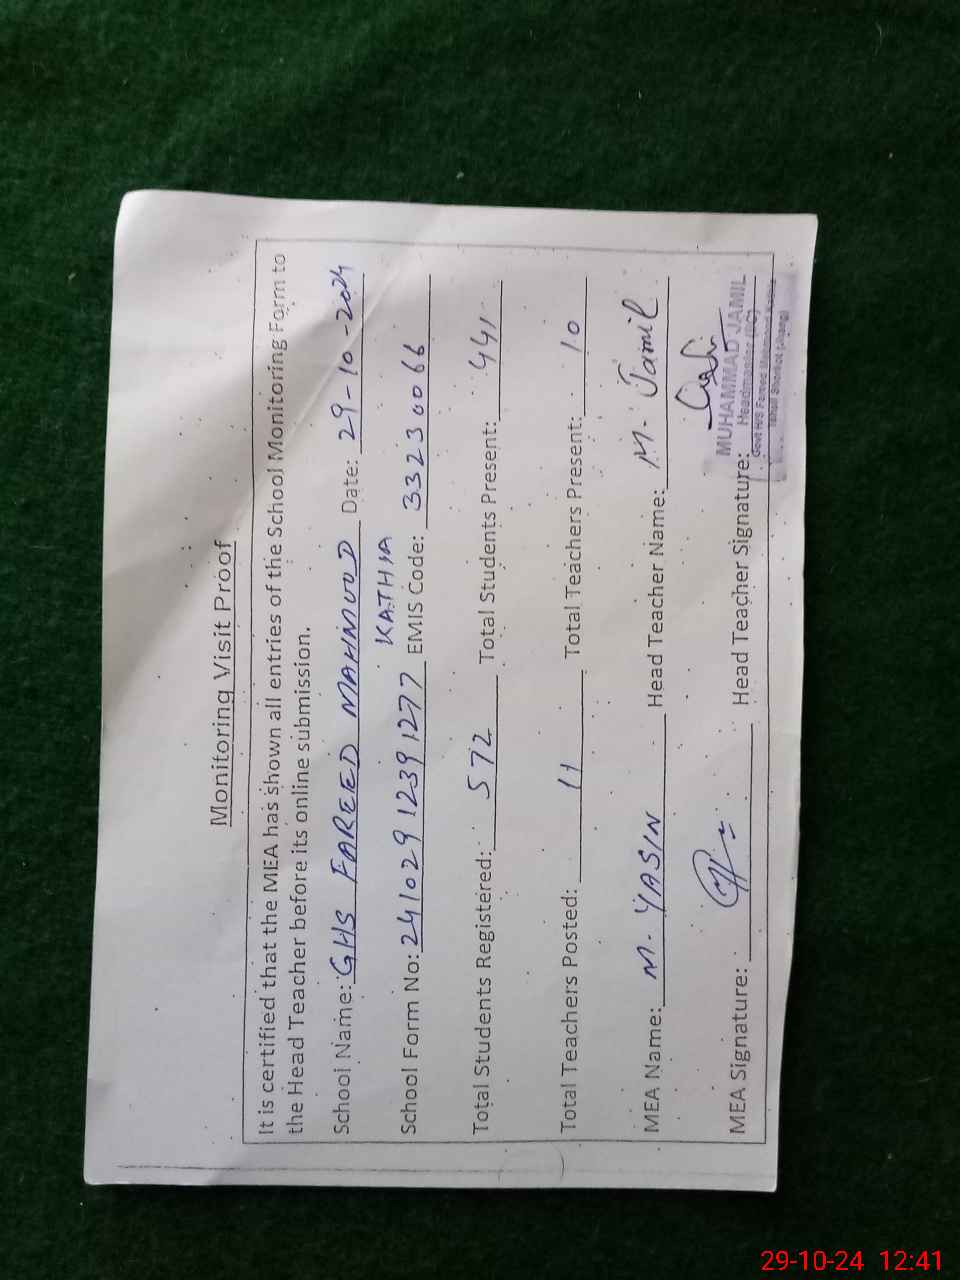 Monitoring Visit Proof
It is certified that the MEA has shown all entries of the School Monitoring Form to
the Head Teacher before its online submission.
School Name: GHS FAREED MAHMOOD Date: 29-10-2024
KATHIA
School Form No: 241029 12391277 EMIS Code: 33230066
Total Students Registered: 572 Total Students Present: 441
Total Teachers Posted: 11 Total Teachers Present: 10
MEA Name: M. YASIN Head Teacher Name: M. Jamil
MEA Signature: Head Teacher Signature:
MUHAMMAD JAMIL
Headmaster
Govt H/S Fareed Mehmood Kathia
Tehsil Shorkot (Jhang)
29-10-24 12:41